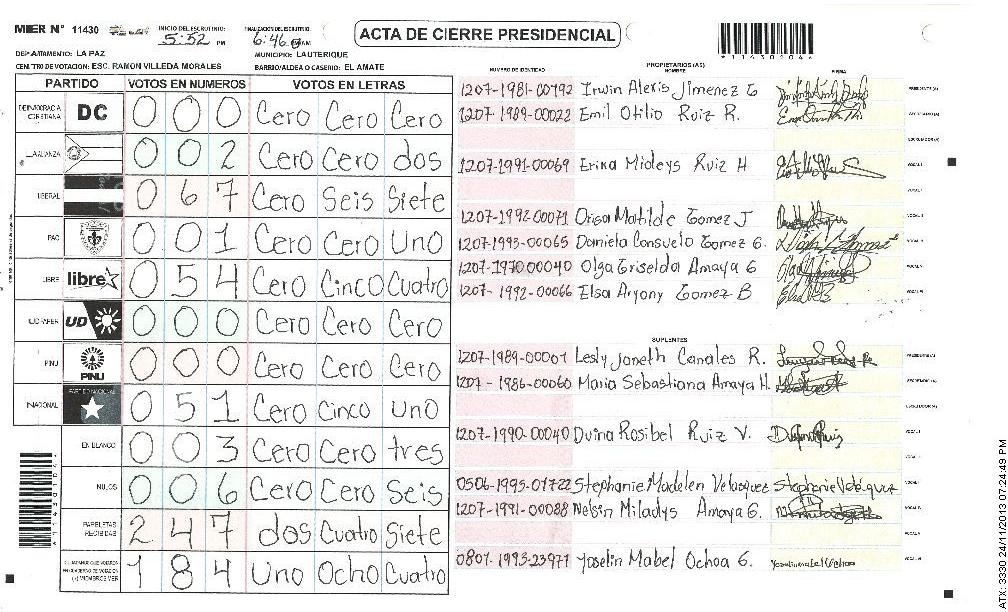 MER N° 11430
INICIO DEL ESCRUTINIO: 5:52 PM
FINALIZACION DEL ESCRUTINIO: 6:46 AM
ACTA DE CIERRE PRESIDENCIAL
DEPARTAMENTO: LA PAZ
MUNICIPIO: LAUTERIQUE
CENTRO DE VOTACION: ESC. RAMON VILLEDA MORALES
BARRIO/ALDEA O CASERIO: EL AMATE
1143020441
PARTIDO VOTOS EN NUMEROS VOTOS EN LETRAS
DEMOCRACIA CRISTIANA DC 0 0 0 Cero Cero Cero
ALIANZA 0 0 2 Cero Cero dos
LIBERAL 0 6 7 Cero Seis Siete
PAC 0 0 1 Cero Cero Uno
LIBRE libre 0 5 4 Cero Cinco Cuatro
UD FAPER UD 0 0 0 Cero Cero Cero
PINU PINU 0 0 0 Cero Cero Cero
NACIONAL PARTIDO NACIONAL 0 5 1 Cero Cinco Uno
EN BLANCO 0 0 3 Cero Cero tres
NULOS 0 0 6 Cero Cero Seis
PAPELETAS RECIBIDAS 2 4 7 dos Cuatro Siete
1 8 4 Uno Ocho Cuatro
NUMERO DE IDENTIDAD PROPIETARIOS (AS) NOMBRE FIRMA
1207-1981-00192 Irwin Alexis Jimenez G PRESIDENTE (A)
1207-1989-00022 Emil Otilio Ruiz R. SECRETARIO (A)
ESCRUTADOR (A)
1207-1991-00069 Erika Midleys Ruiz H VOCAL I
1207-1992-00071 Orisa Matilde Gomez J
1207-1993-00065 Daniela Consuelo Gomez G.
1207-1970-00040 Olga Griselda Amaya G
1207-1992-00066 Elsa Aryony Gomez B
SUPLENTES
1207-1989-00001 Lesly Joneth Canales R. PRESIDENTE (A)
1207-1986-00060 Maria Sebastiana Amaya H. SECRETARIO (A)
ESCRUTADOR (A)
1207-1990-00040 Dvina Rosibel Ruiz V. VOCAL I
0506-1995-01722 Stephanie Madelen Velasquez Stephanie Velásquez
1207-1991-00088 Nelsin Miladys Amaya G.
0801-1993-23971 Yoselin Mabel Ochoa G. Yoselin Mabel Ochoa
ATX: 3330 24/11/2013 07:24:49 PM